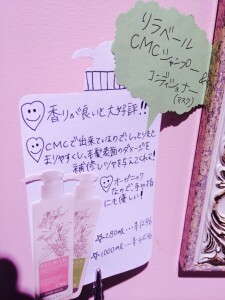 リラベール
CMCシャンプー
&
コンディショナー
(マスク)
香りが良いと大好評!!
CMCで出来ているのでしっとりまと
まりやすくし、毛髪表面のダメージを
補修しツヤを与えてくれる!
オーガニック
なので、手や指
にも優しい!
☆280ml...¥
☆1000ml...¥